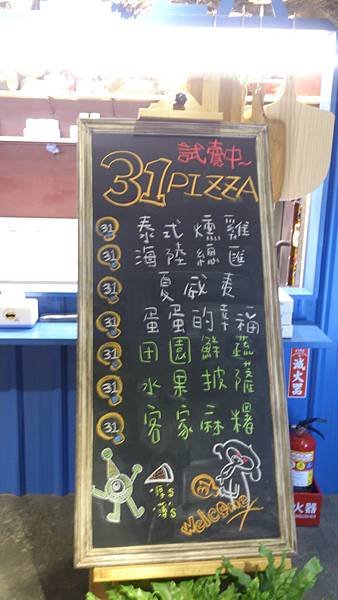 試賣中~
31 PIZZA
31 泰式燻雞
31 海陸總匯
31 夏威夷
31 蛋蛋的幸福
31 田園鮮蔬
31 水果披薩
31 客家麻糬
厚S
薄S
welcome
滅火器
火器